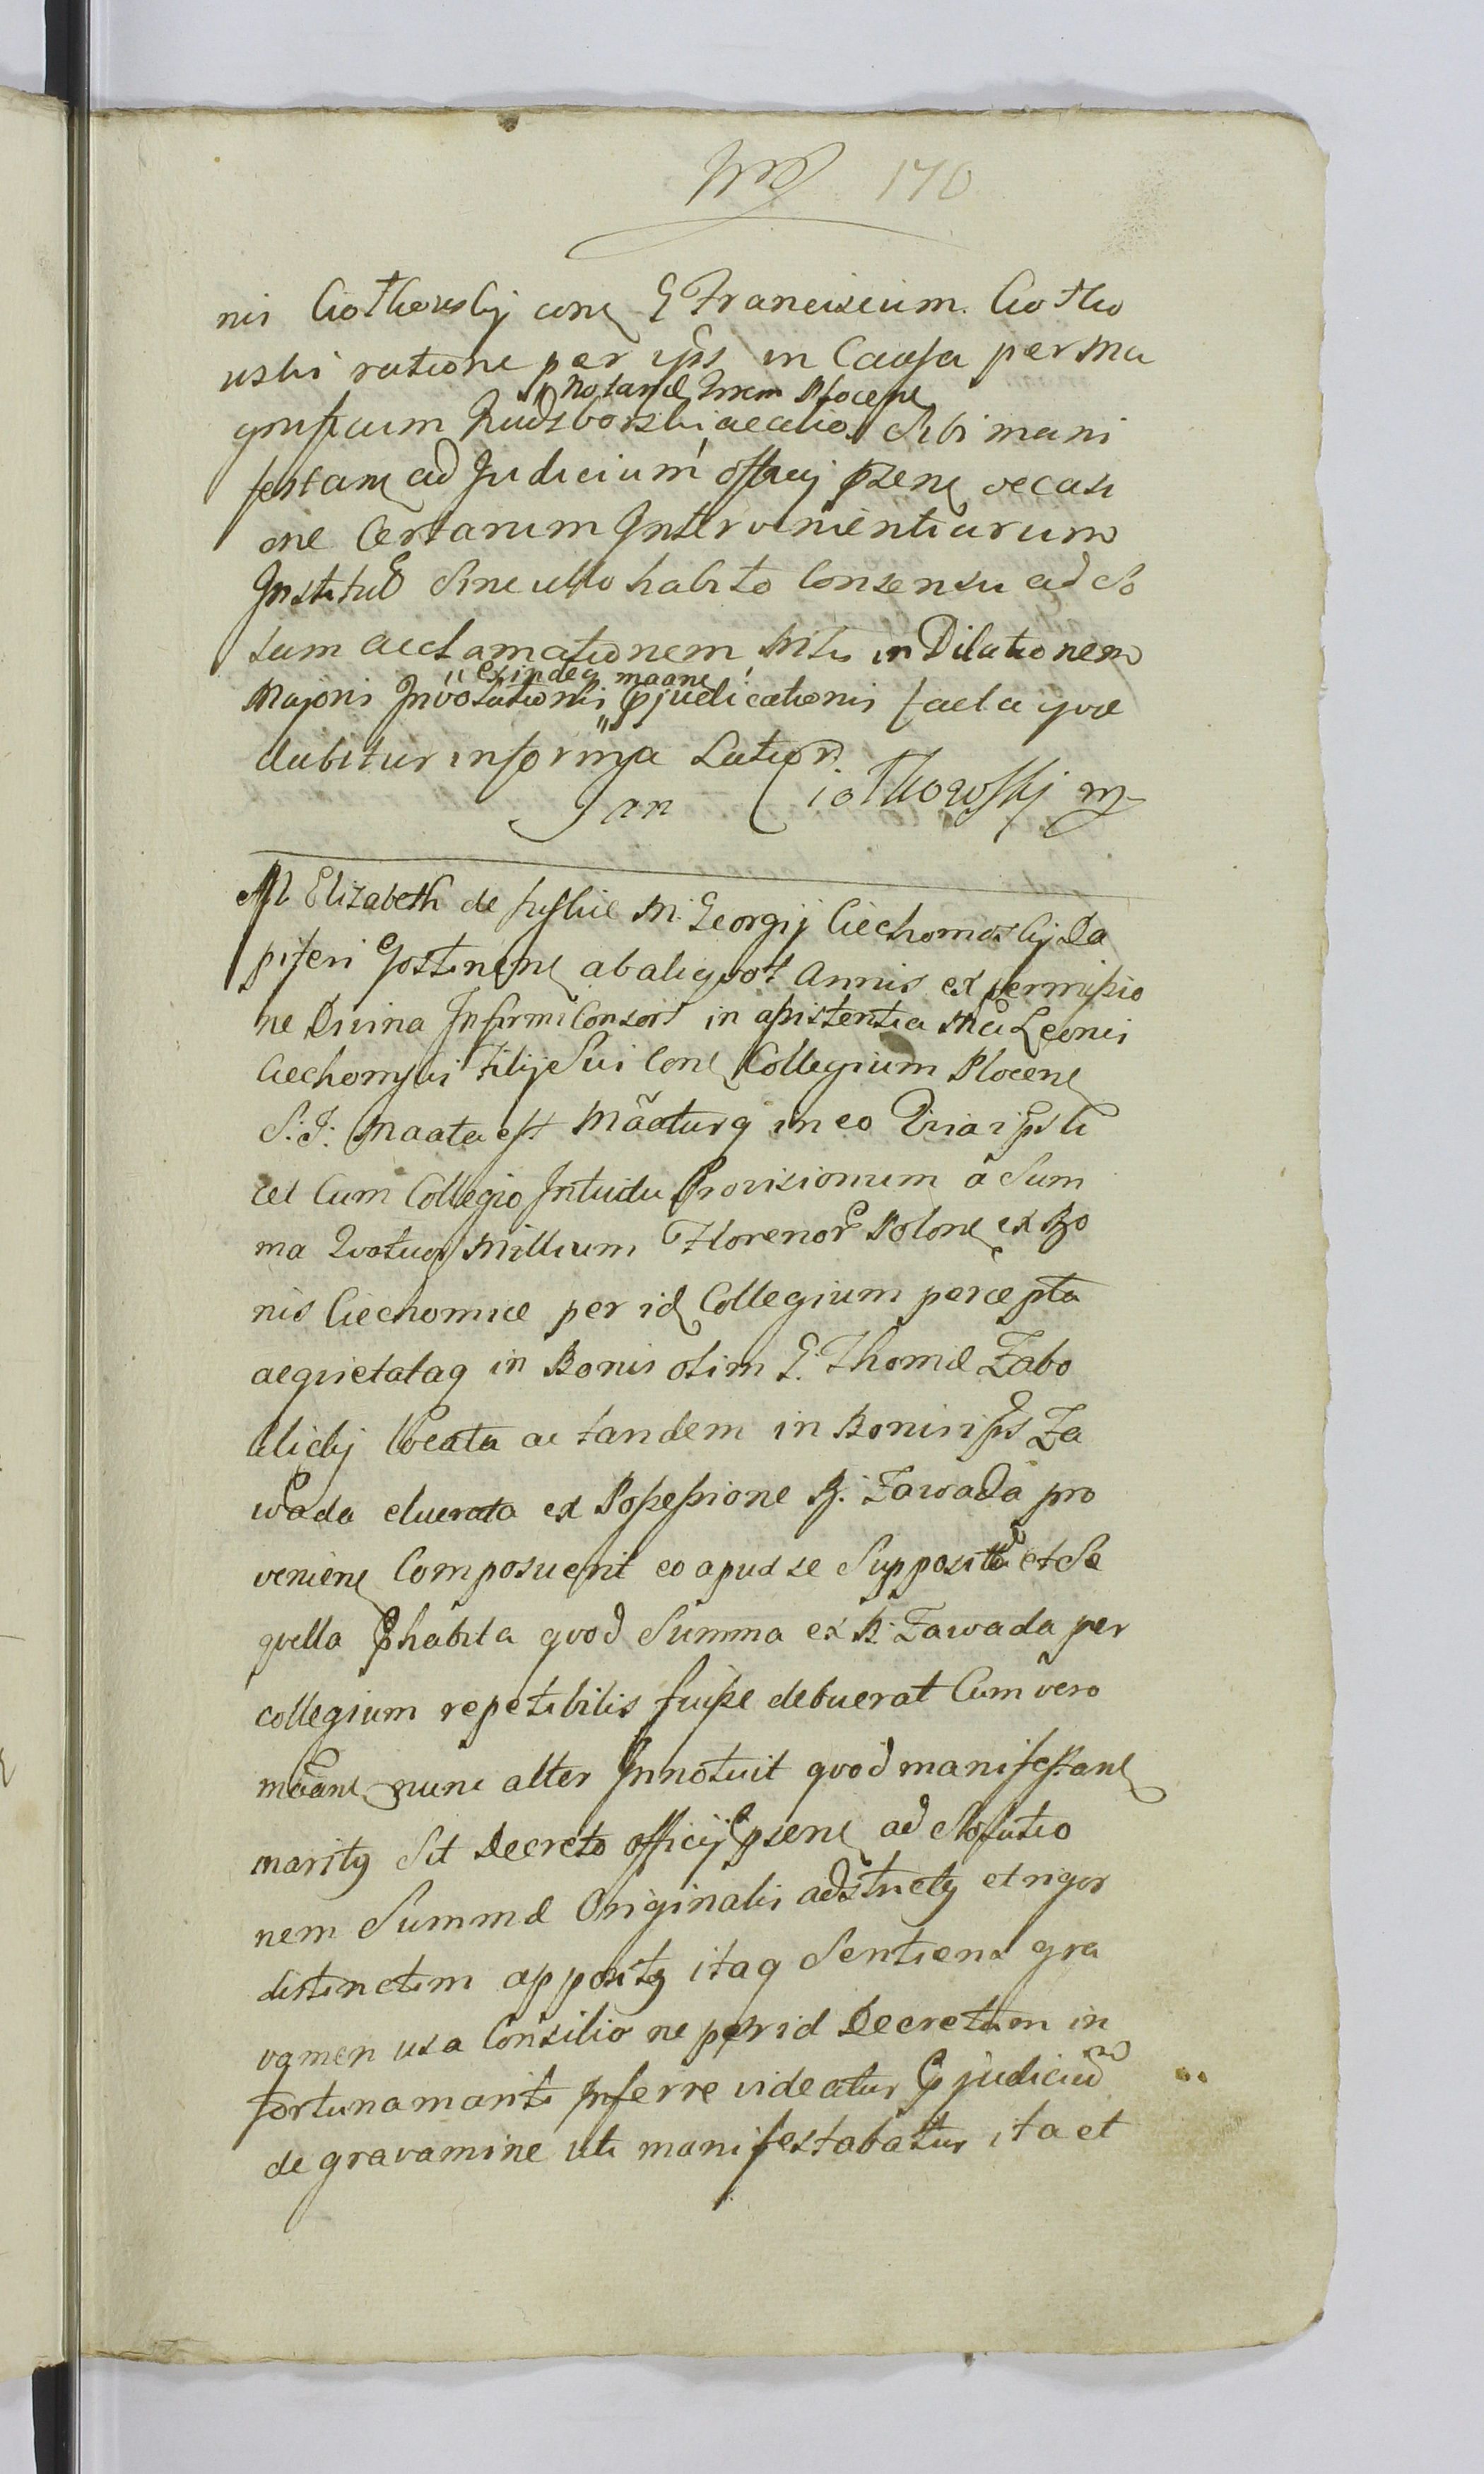 170
nis Ciołkowskij con G Franciscum Ciołko
wski ratione per ips in Causa per Ma
Notariũ Trrem Plocens
gnificum accalios Sibi mani
festan ad Judicium officij psens occasi
one Certarum Intervenientiarum
Institut Sine ullo habito Consensu ad So
lam acclamationem litis in Dilationem
exindeq maane
Majoris Involutionis pjudicationis facta qvæ
dabitur in forma Latiori
Jan Ciołkowskj m
M Elizabeth de M. Georgij Ciechomskij Da
piferi Gostinen ab aliqvot Annis ex permissio
ne Divina Infirmi Consors in assistentia Mci Leonis
Ciechomski Filij Sui Con Collegium Plocens
S: J: Maata est Mãaturq in eo Qvia ips li
cet Cum Collegio Intuitu Provisionum a Sum
ma Qvatuor Millium Florenor Polon ex Bo
nis Ciechomice per id Collegium percepta
acqvietataq in Bonis olim G. Thomæ Zabo
klickj locata ac tandem in Bonis ips Za
wada eluerata ex Possessione B. Zawada pro
venien Composuerit eo apud se Supposito et Se
qvella phabita qvod Summa ex B. Zawada per
collegium repetibilis fuisse debuerat Cum vero
maane nunc alter Innotuit qvod manifestans
maritq Sit Decreto officij psens ad Solutio
nem Summæ Originalis adstrictq et rigor
distinctim appositq itaq Sentiens gra
vamen usa Consilio ne per id Decretum in
fortuna mariti Inferre videatur pjudiciũ
de gravamine uti manifestabatur ita et